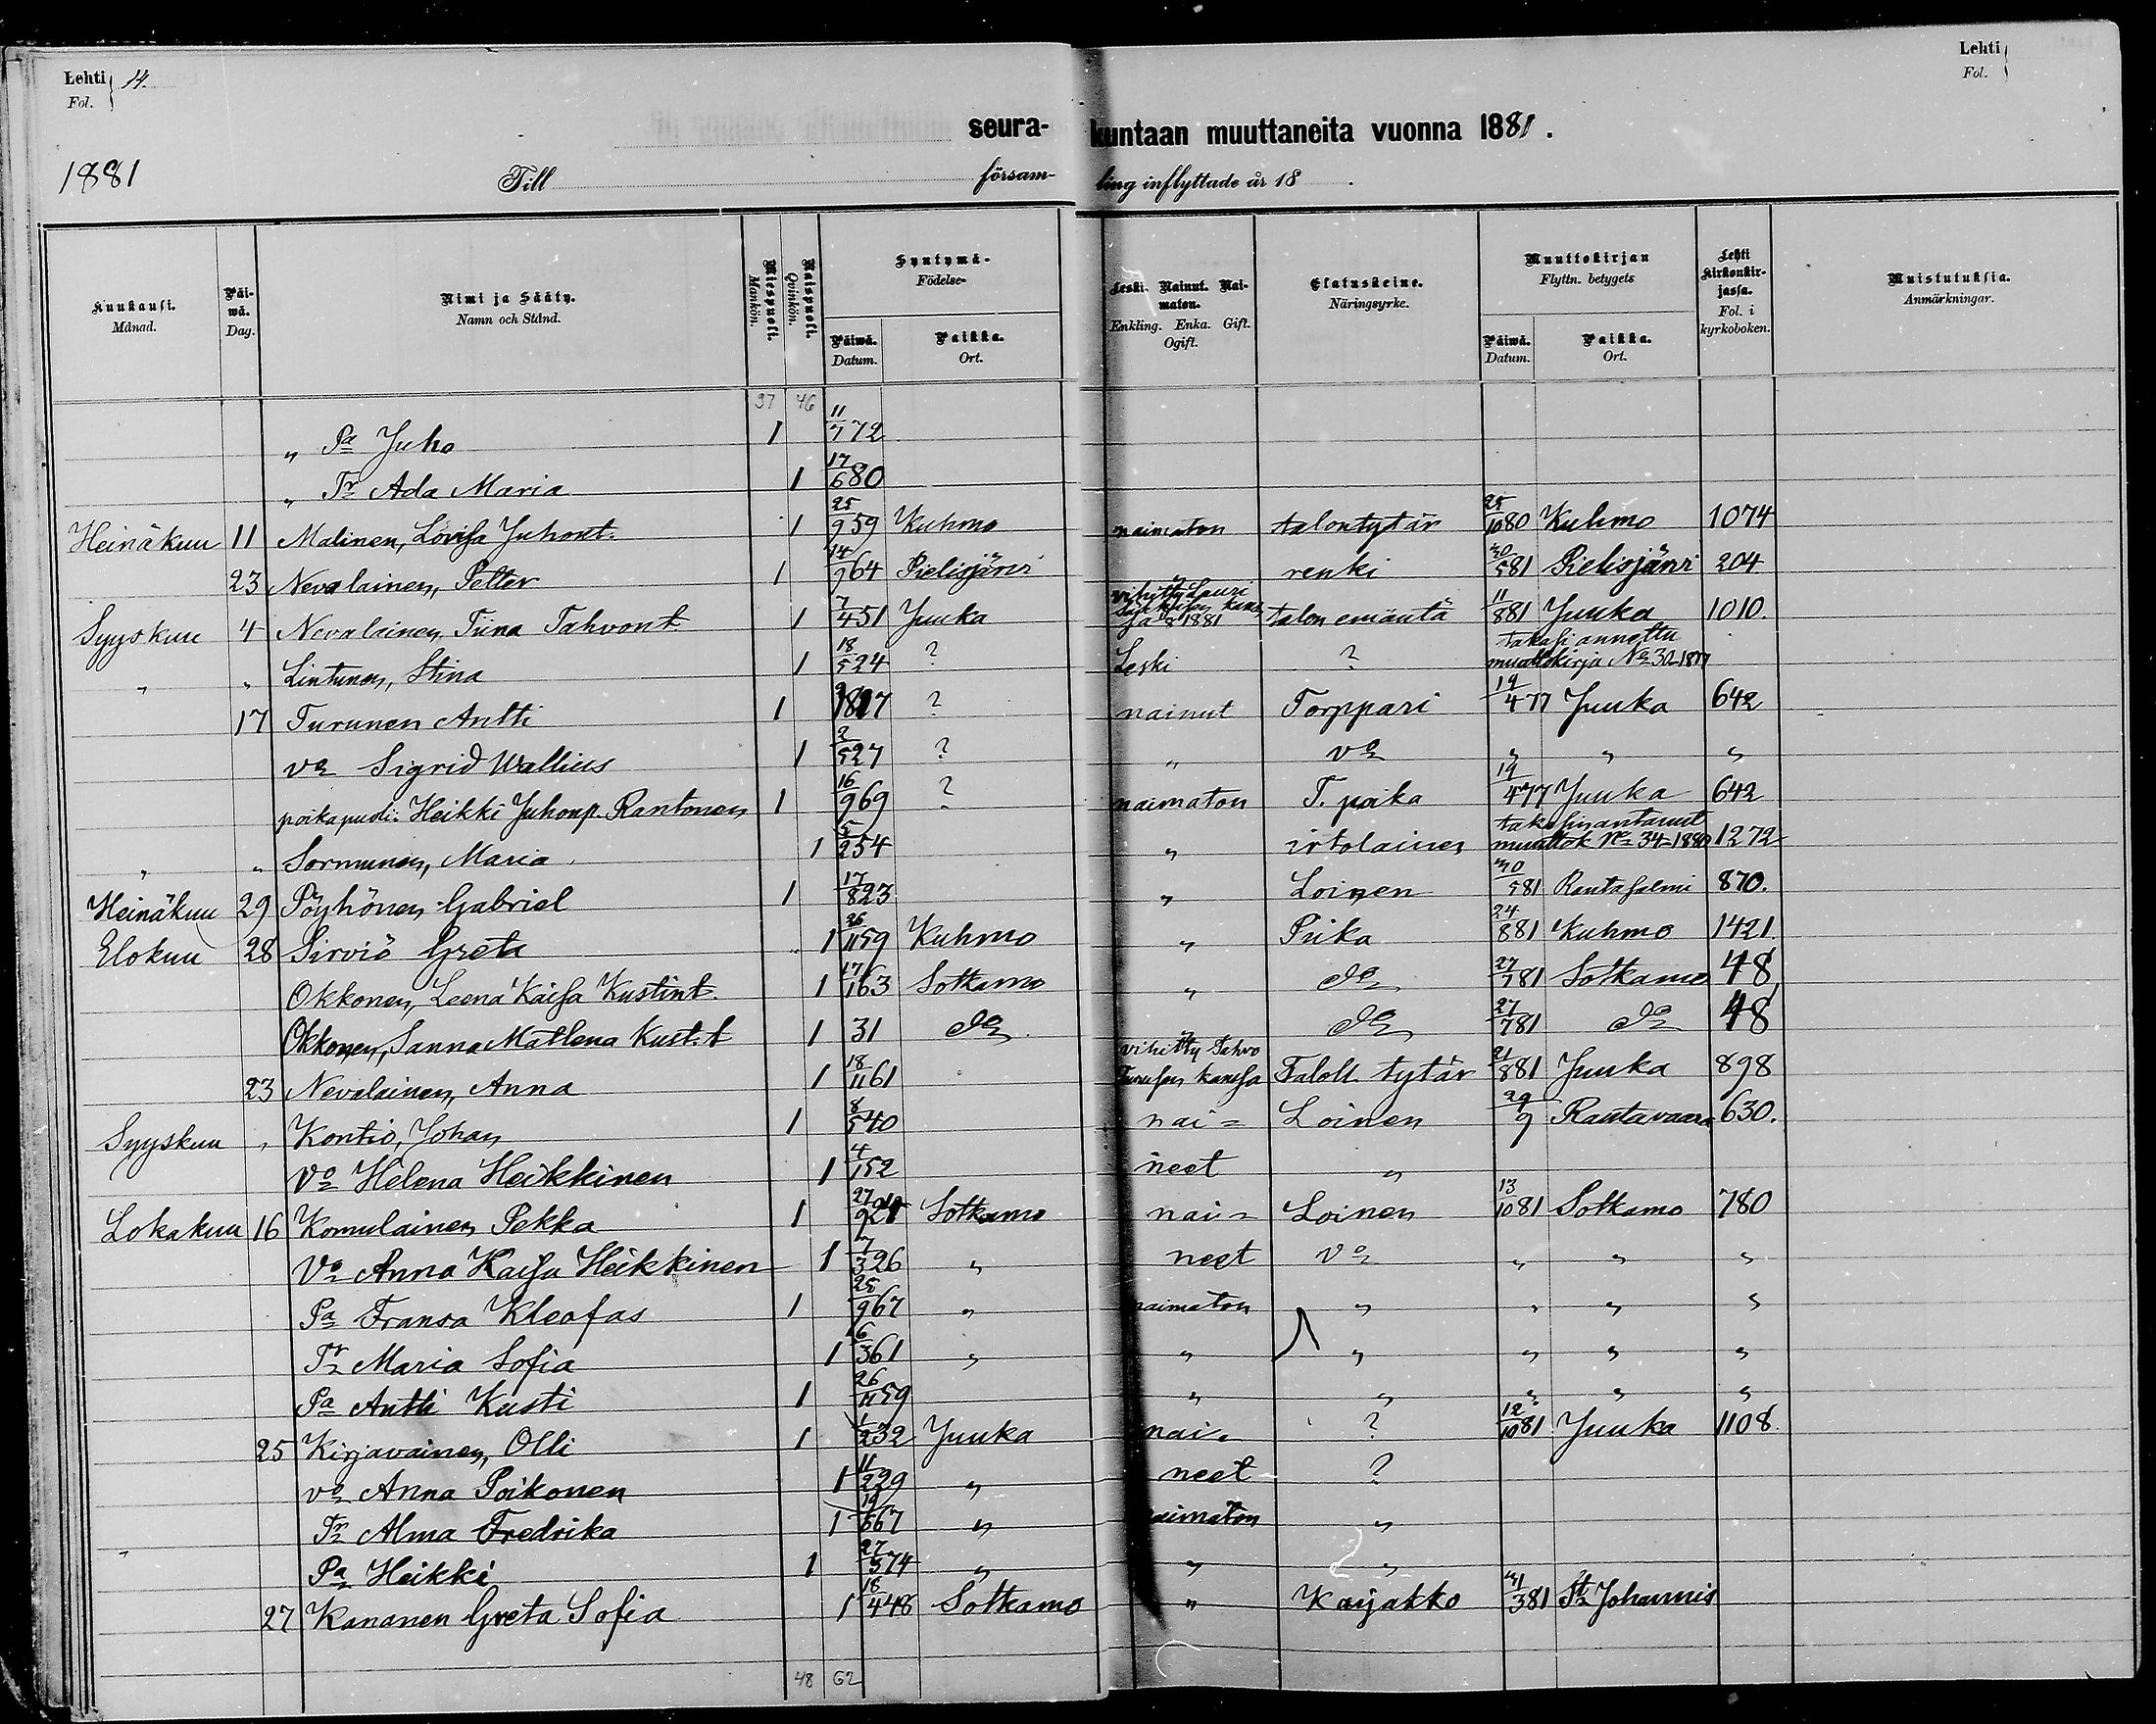 Lehti Fol. 14.
Lehti Fol.
seurakuntaan muuttaneita vuonna 1881.
1881 Till församling inflyttade år 18 .
Kuukausi. Månad. Päiwä. Dag. Nimi ja Sääty. Namn och Stånd. Miespuoli. Mankön. Naispuoli. Qvinkön. Syntymä- Födelse- Päiwä. Datum. Paikka. Ort. Leski. Nainut. Naimaton. Enkling. Enka. Gift. Ogift. Elatuskeino. Näringsyrke. Muuttokirjan Flyttn. betygets Päiwä. Datum. Paikka. Ort. Lehti kirkonkirjassa. Fol. i kyrkoboken. Muistutuksia. Anmärkningar.
37 46
„ Pa Juho 1 11/7 72
„ Tr Ada Maria 1 17/6 80
Heinäkuu 11 Malinen, Lovisa Juhont. 1 25/9 59 Kuhmo naimaton talontytär 25/10 80 Kuhmo 1074
23 Nevalainen, Petter 1 14/9 64 Pielisjärvi „ renki 30/5 81 Pielisjärvi 204
Syyskuu 4 Nevalainen, Tiina Tahvont. 1 7/4 51 Juuka vihitty Lauri 1881 talon emäntä 11/8 81 Juuka 1010.
„ „ Lintunen, Stina 1 18/5 24 ? Leski ? takasi annettu muuttokirja No 30 1877
17 Turunen Antti 1 1817 ? nainut Torppari 19/4 77 Juuka 642
vo Sigrid Wallius 1 2/5 27 ? „ vo „ „ „
poikapuoli. Heikki Juhonp. Rantonen 1 16/9 69 ? naimaton T. poika 19/4 77 Juuka 642
„ „ Sormunen, Maria 1 5/2 54 „ irtolainen muuttok No 34 1880 1272
Heinäkuu 29 Pöyhönen Gabriel 1 17/8 23 „ Loinen 30/5 81 Rantasalmi 870.
Elokuu 28 Sirviö Greta 1 26/11 59 Kuhmo „ Piika 24/8 81 Kuhmo 1421
Okkonen, Leena Kaisa Kustint. 1 17/1 63 Sotkamo „ do 27/7 81 Sotkamo 48
Okkonen, Sanna Matlena Kust. t 1 31 do „ do 27/7 81 do 48
23 Nevalainen, Anna 1 18/11 61 vihitty Tahvo Turusen kanssa Taloll. tytär 21/8 81 Juuka 898
Syyskuu „ Kontio, Johan 1 8/5 40 nai= Loinen 29/9 Rautavaara 630.
Vo Helena Heikkinen 1 4/1 52 neet „
Lokakuu 16 Komulainen Pekka 1 27/9 21 Sotkamo nai= Loinen 13/10 81 Sotkamo 780
Vo Anna Kaisa Heikkinen 1 7/3 26 „ neet vo „ „ „
Pa Fransa Kleofas 1 25/9 67 „ naimaton „ „ „ „
Tr Maria Sofia 1 6/3 61 „ „ „ „ „ „
Pa Antti Kusti 1 26/11 59 „ „ „ „ „
25 Kirjavainen, Olli 1 1/2 32 Juuka nai= ? 12/10 81 Juuka 1108.
vo Anna Poikonen 1 11/2 29 „ neet ?
Tr Alma Fredrika 1 19/5 67 „ naimaton „
Pa Heikki 1 27/5 74 „ „ „
27 Kananen Greta Sofia 1 18/4 48 Sotkamo „ Karjakko 31/3 81 St Johannis
48 62